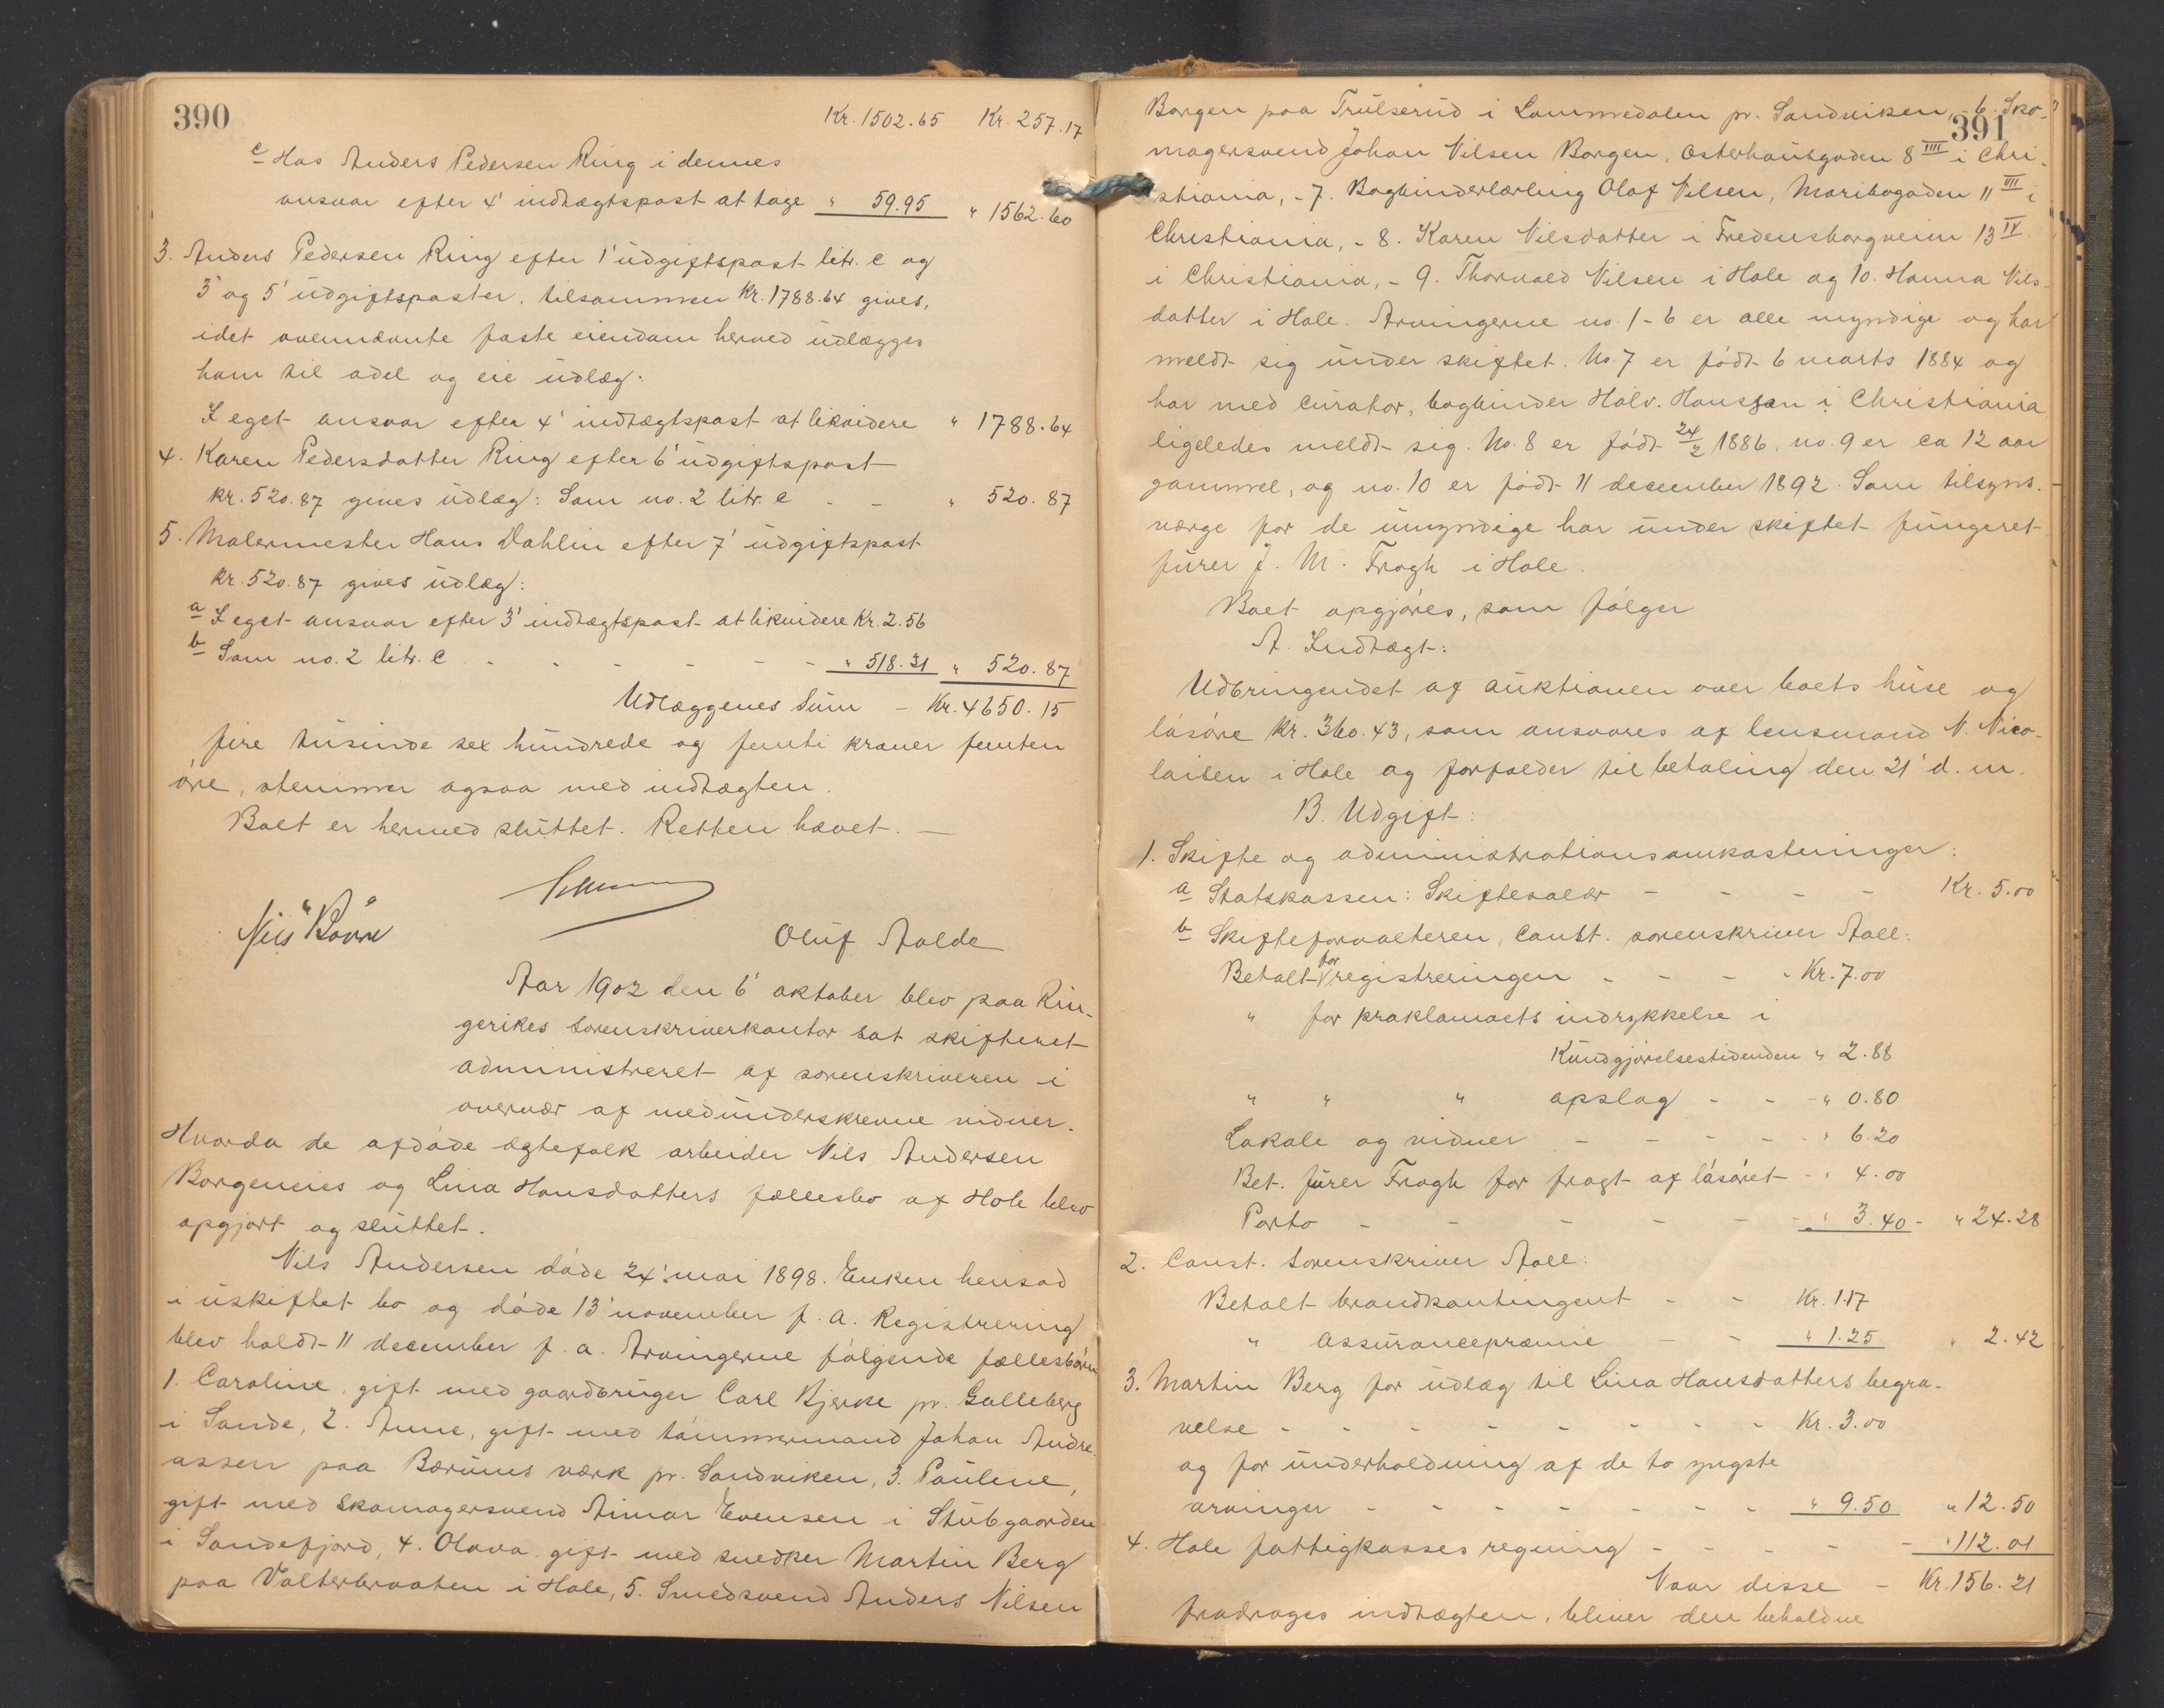 390
Kr. 1502.65 Kr. 257.17
c Hos Anders Pedersen Ring i dennes
ansvar efter 4' indtægtspost at tage " 59.95 " 1562.60
3. Anders Pedersen Ring efter 1' udgiftspost litr. c og
3' og 5' udgiftsposter, tilsammen Kr. 1788.64 gives,
idet ovennævnte faste eiendom herved udlægges
ham til odel og eie udlæg:
I eget ansvar efter 4' indtægtspost at likvidere " 1788.64
4. Karen Pedersdatter Ring efter 6' udgiftspost
kr. 520.87 gives udlæg: Som no. 2 litr. c - - " 520.87
5. Malermester Hans Dahlin efter 7' udgiftspost
kr. 520.87 gives udlæg:
a I eget ansvar efter 3' indtægtspost at likvidere Kr. 2.56
b Som no. 2 litr. c - - - - - - " 518.31 " 520.87
Udlæggenes Sum - Kr. 4650.15
fire tusinde sex hundrede og femti kroner femten
øre, stemmer ogsaa med indtægten.
Boet er hermed sluttet. Retten hævet. —
Oluf Aalde
Aar 1902 den 6' oktober blev paa Rin-
gerikes sorenskriverkontor sat skifteret
administreret af sorenskriveren i
overvær af medunderskrevne vidner.
Hvorda de afdøde ægtefolk arbeider Nils Andersen
Borgeneies og Lina Hansdatters fællesbo af Hole blev
opgjort og sluttet.
Nils Andersen døde 24' mai 1898. Enken hensad
i uskiftet bo og døde 13' november f. a. Registrering
blev holdt 11 december f. a. Arvingerne følgende fællesbørn
1. Caroline, gift med gaardbruger Carl Bjerke pr. Galleberg
i Sande, 2. Anne, gift med tømmermand Johan Andre-
assen paa Bærums værk pr. Sandviken, 3. Pauline,
gift med skomagersvend Aimar Evensen i Stubgaarden
i Sandefjord, 4. Olava, gift med snedker Martin Berg
paa Valterbraaten i Hole, 5. Smedsvend Anders Nilsen
391
Borgen paa Trulserud i Lommedalen pr. Sandviken, - 6. Sko-
magersvend Johan Nilsen Borgen, Osterhausgaden 8 IIII i Chri-
stiania, - 7. Bogbinderlærling Olaf Nilsen, Maribogaden 11 III i
Christiania, - 8. Karen Nilsdatter i Fredensborgveien 13 IV
i Christiania, - 9. Thorvald Nilsen i Hole og 10. Hanna Nils-
datter i Hole. Arvingerne no. 1-6 er alle myndige og har
meldt sig under skiftet. No. 7 er født 6 marts 1884 og
har med curator, bogbinder Halv. Hanssen i Christiania
ligeledes meldt sig. No. 8 er født 24/2 1886, no. 9 er ca 12 aar
gammel, og no. 10 er født 11 december 1892. Som tilsyns-
værge for de umyndige har under skiftet fungeret
furer J. M. Frogh i Hole.
Boet opgjøres, som følger
A. Indtægt:
Udbringendet af auktionen over boets huse og
løsøre kr. 360.43, som ansvares af lensmand N. Nico-
laisen i Hole og forfalder til betaling den 21' d. m.
B. Udgift:
1. Skifte og administrationsomkostninger:
a Statskassen: Skiftesalær - - - - Kr. 5.00
b Skifteforvalteren, const. sorenskriver Aall:
Betalt for registreringen - - - - Kr. 7.00
" for proklamaets indrykkelse i
Kundgjørelsestidenden " 2.88
" " " opslag - - - " 0.80
Lokale og vidner - - - - - " 6.20
Bet. furer Frogh for fragt af løsøret - " 4.00
Porto - - - - - - " 3.40 - " 24.28
2. Const. sorenskriver Aall:
Betalt brandkontingent - - Kr. 1.17
" assurancepræmie - - " 1.25 " 2.42
3. Martin Berg for udlæg til Lina Hansdatters begra-
velse - - - - - - - - Kr. 3.00
og for underholdning af de to yngste
arvinger - - - - - - - " 9.50 " 12.50
4. Hole fattigkasses regning - - - - - " 112.01
Naar disse - Kr. 156.21
fradrages indtægten, bliver den beholdne